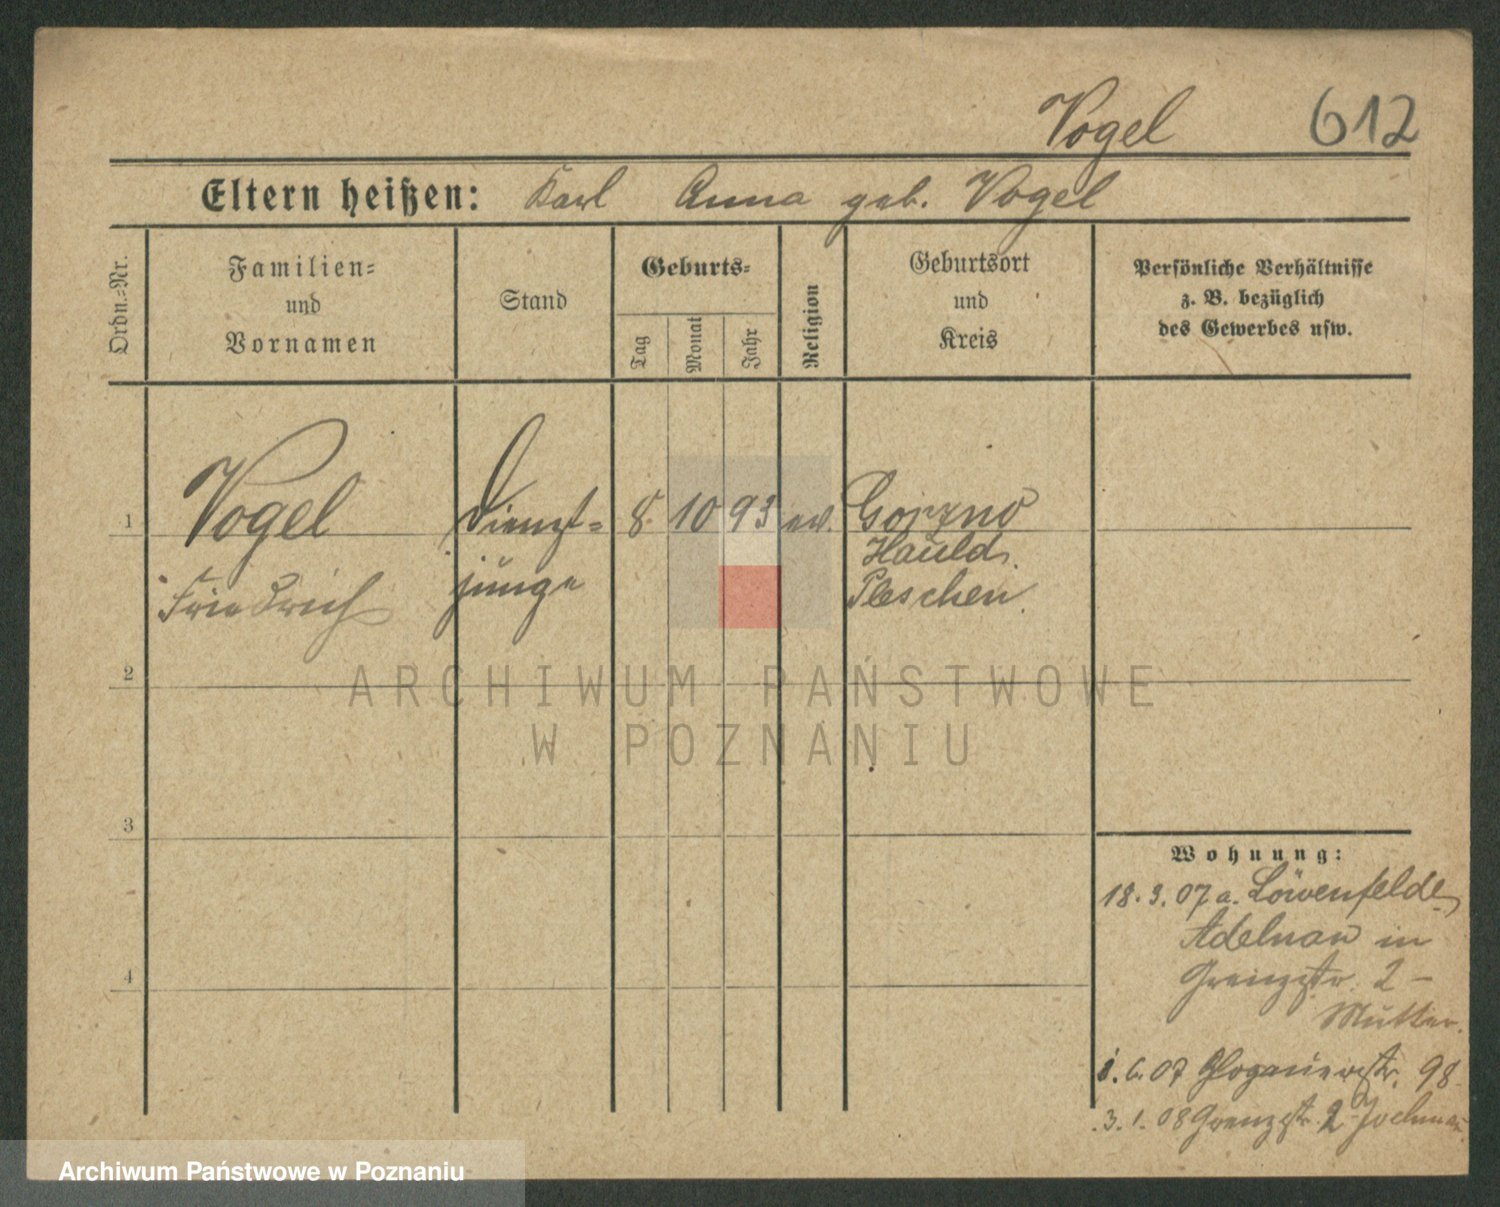 Vogel 612
Eltern heißen: Karl Anna geb. Vogel
Ordn.=Nr.
Familien=
und
Vornamen
Stand
Geburts=
Tag
Monat
Jahr
Religion
Geburtsort
und
Kreis
Persönliche Verhältnisse
z. B. bezüglich
des Gewerbes usw.
1 Vogel Dienst= 8. 10 93 ev. Gorzno
Hauld.
Friedrich junge Pleschen.
2
ARCHIWUM PAŃSTWOWE
W POZNANIU
3
Wohnung:
18. 3. 07 a. Löwenfelde
Adelnau in
4
Grenzstr. 2 –
Mutter.
1. 6. 07 Glogauerstr. 98
3. 1. 08 Grenzstr. 2
Archiwum Państwowe w Poznaniu